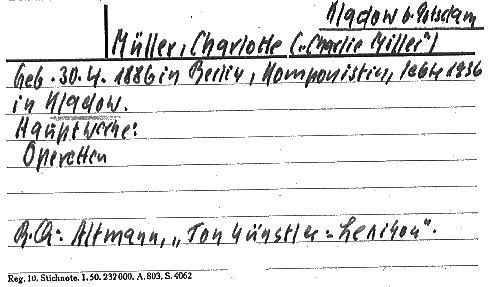 Kladow b. Potsdam
Müller, Charlotte („Charlie Miller“)
Geb. 30.4. 1886 in Berlin, Komponistin, lebte 1936
in Kladow.
Hauptwerke:
Operetten
B.Q.: Altmann, „Tonkünstler=Lexikon“.
Reg. 10. Stichnote. I. 50. 232000. A. 803. S. 4062